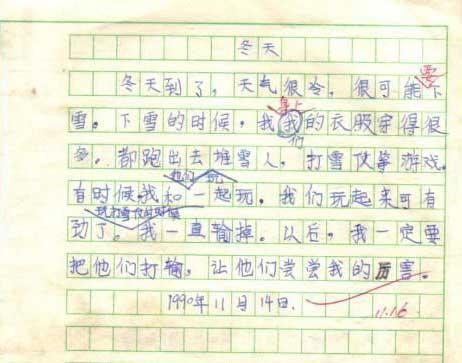 冬天
冬天到了，天气很冷，很可能要下
雪。下雪的时候，我我们的衣服穿得很
多。都跑出去堆雪人，打雪仗等游戏。
他们 玩
有时候我和一起玩。我们玩起来可有
玩打雪仗的时候
劲了。我一直输掉。以后，我一定要
把他们打输，让他们尝尝我的厉害。
1990年11月14日.
11.16